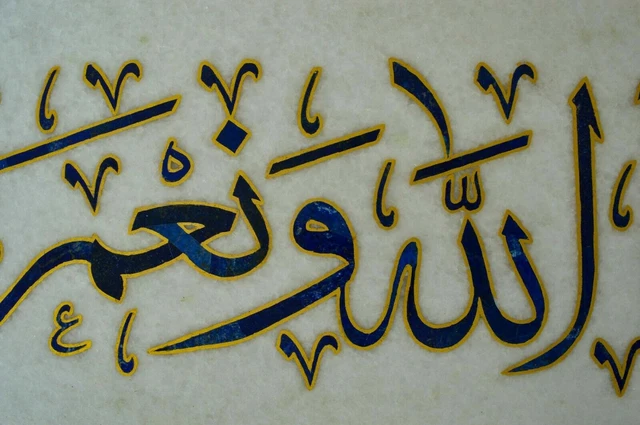 الله ونعم